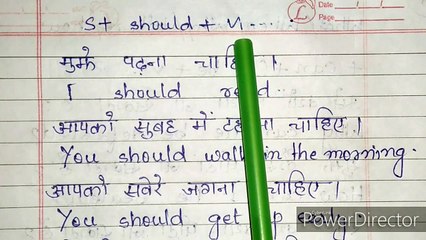 S+ should + V.....
Date / /
Page
मुझे पढ़ना चाहिए।
I should read.
आपको सुबह में टहलना चाहिए।
You should walk in the morning.
आपको सवेरे जगना चाहिए।
You should get up early.
PowerDirector